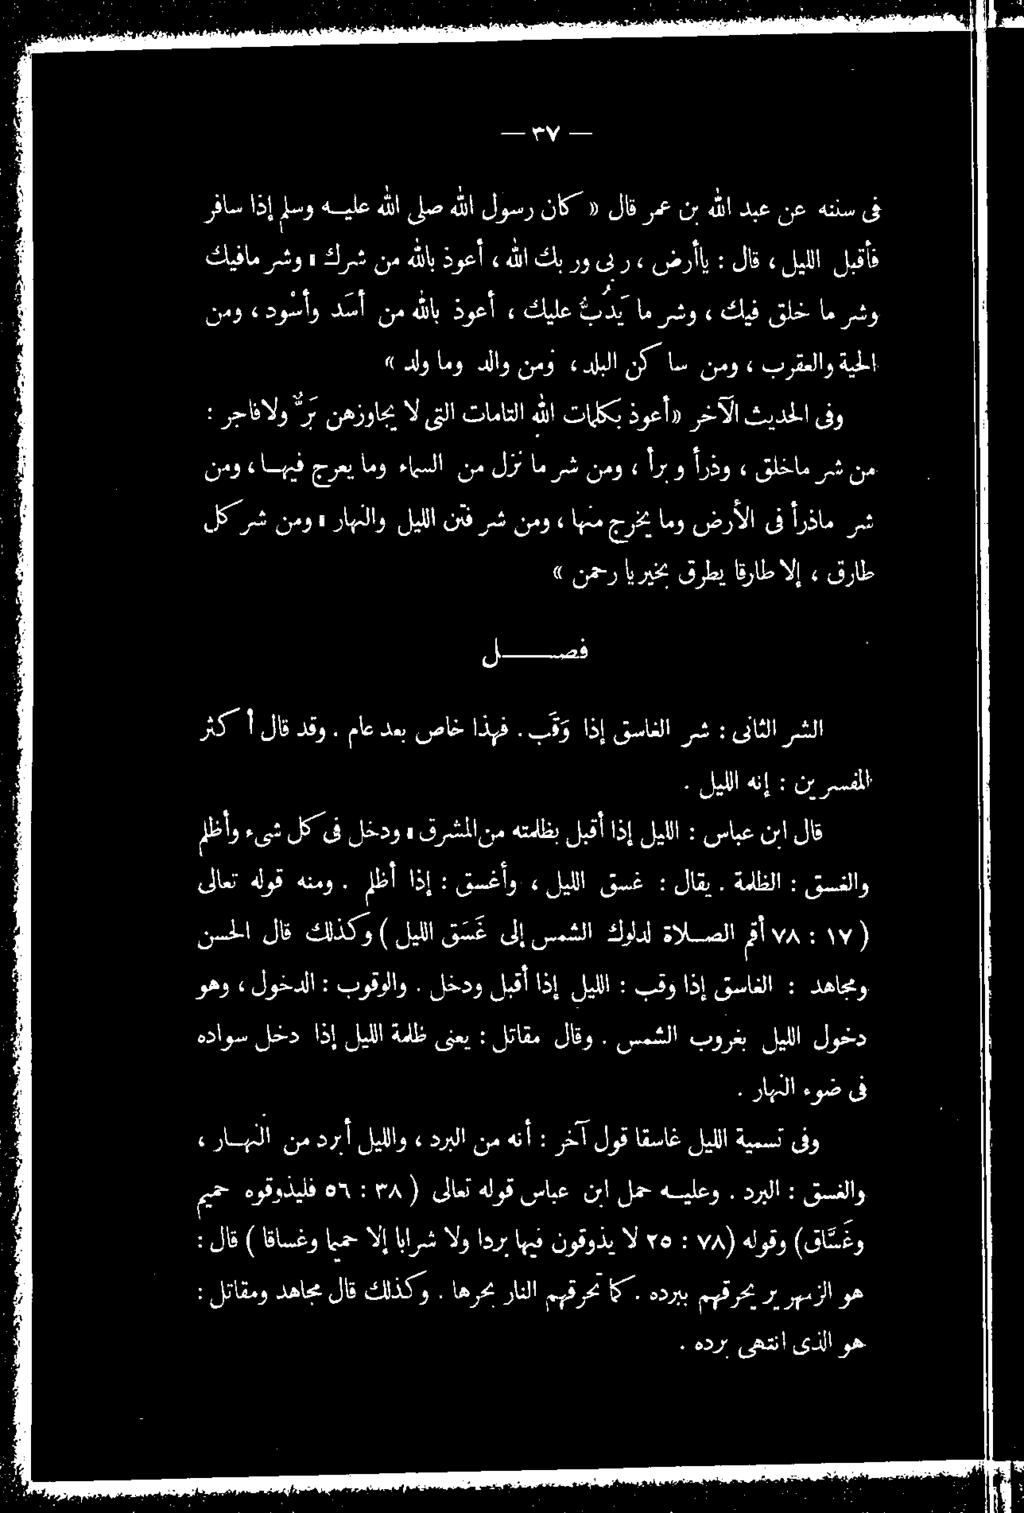 — ٣٧ —
فى سننه عن عبد الله بن عمر قال « كان رسول الله صلى الله عليـه وسلم إذا سافر
فأقبل الليل ، قال : ياأرض ، ربى وربك الله ، أعوذ بالله من شرك ، وشر مافيك
وشر ما خلق فيك ، وشر ما يَدُبُّ عليك ، أعوذ بالله من أسَد وأسْود ، ومن
الحية والعقرب ، ومن ساكن البلد ، ومن والد وما ولد »
وفى الحديث الآخر « أعوذ بكلمات الله التامات التى لا يجاوزهن بَرٌّ ولافاجر :
من شر ماخلق ، وذرأ وبرأ ، ومن شر ما نزل من السماء وما يعرج فيهـا ، ومن
شر ماذرأ فى الأرض وما يخرج منها ، ومن شر فتن الليل والنهار ، ومن شر كل
طارق ، إلا طارقا يطرق بخير يا رحمن »
فصـــل
الشر الثانى : شر الغاسق إذا وَقَب . فهذا خاص بعد عام . وقد قال أكثر
المفسرين : إنه الليل .
قال ابن عباس : الليل إذا أقبل بظلمته من المشرق ، ودخل فى كل شىء وأظلم
والغسق : الظلمة . يقال : غسق الليل ، وأغسق : إذا أظلم . ومنه قوله تعالى
( ١٧ : ٧٨ أقم الصـلاة لدلوك الشمس إلى غَسَق الليل ) وكذلك قال الحسن
ومجاهد : الغاسق إذا وقب : الليل إذا أقبل ودخل . والوقوب : الدخول ، وهو
دخول الليل بغروب الشمس . وقال مقاتل : يعنى ظلمة الليل إذا دخل سواده
فى ضوء النهار .
وفى تسمية الليل غاسقا قول آخر : أنه من البرد ، والليل أبرد من النهـار ،
والغسق : البرد . وعليـه حمل ابن عباس قوله تعالى ( ٣٨ : ٥٦ فليذوقوه حميم
وغَسَّاق ) وقوله ( ٧٨ : ٢٥ لا يذوقون فيها بردا ولا شرابا إلا حميما وغساقا ) قال :
هو الزمهرير يحرقهم ببرده . كما تحرقهم النار بحرها . وكذلك قال مجاهد ومقاتل :
هو الذى انتهى برده .